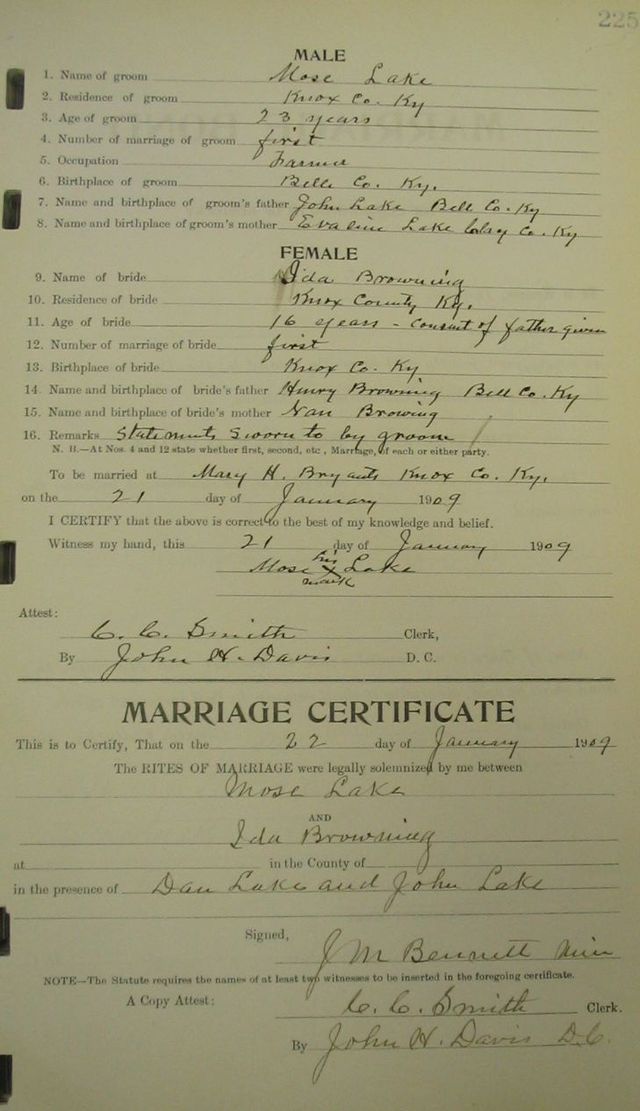 225
MALE
1. Name of groom Mose Lake
2. Residence of groom Knox Co. Ky
3. Age of groom 23 years
4. Number of marriage of groom first
5. Occupation Farmer
6. Birthplace of groom Bell Co. Ky.
7. Name and birthplace of groom's father John Lake Bell Co. Ky
8. Name and birthplace of groom's mother Evaline Lake Clay Co. Ky
FEMALE
9. Name of bride Ida Browning
10. Residence of bride Knox County Ky.
11. Age of bride 16 years - consent of father given
12. Number of marriage of bride first
13. Birthplace of bride Knox Co. Ky
14. Name and birthplace of bride's father Henry Browning Bell Co. Ky
15. Name and birthplace of bride's mother Nan Browing
16. Remarks Statements sworn to by groom
N. B.—At Nos. 4 and 12 state whether first, second, etc , Marriage, of each or either party.
To be married at Mary H. Bryants Knox Co. Ky.
on the 21 day of January 1909
I CERTIFY that the above is correct to the best of my knowledge and belief.
Witness my hand, this 21 day of January 1909
his
Mose X Lake
mark
Attest:
C. C. Smith Clerk,
By John H. Davis D. C.
MARRIAGE CERTIFICATE
This is to Certify, That on the 22 day of January 1909
The RITES OF MARRIAGE were legally solemnized by me between
Mose Lake
AND
Ida Browning
at in the County of
in the presence of Dan Lake and John Lake
Signed,
J M Bennett Min
NOTE—The Statute requires the names of at least two witnesses to be inserted in the foregoing certificate.
A Copy Attest: C. C. Smith Clerk.
By John H. Davis D.C.